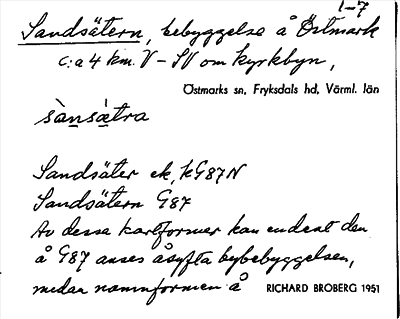 1-7
Sandsätern, bebyggelse å Östmark
c:a 4 km. V - SV om kyrkbyn,
Östmarks sn, Fryksdals hd, Värml. län
sànsætra
Sandsäter ek, k G87N
Sandsätern G87
Av dessa kartformer kan endast den
å G87 anses åsyfta bybebyggelsen,
medan namnformen å
RICHARD BROBERG 1951